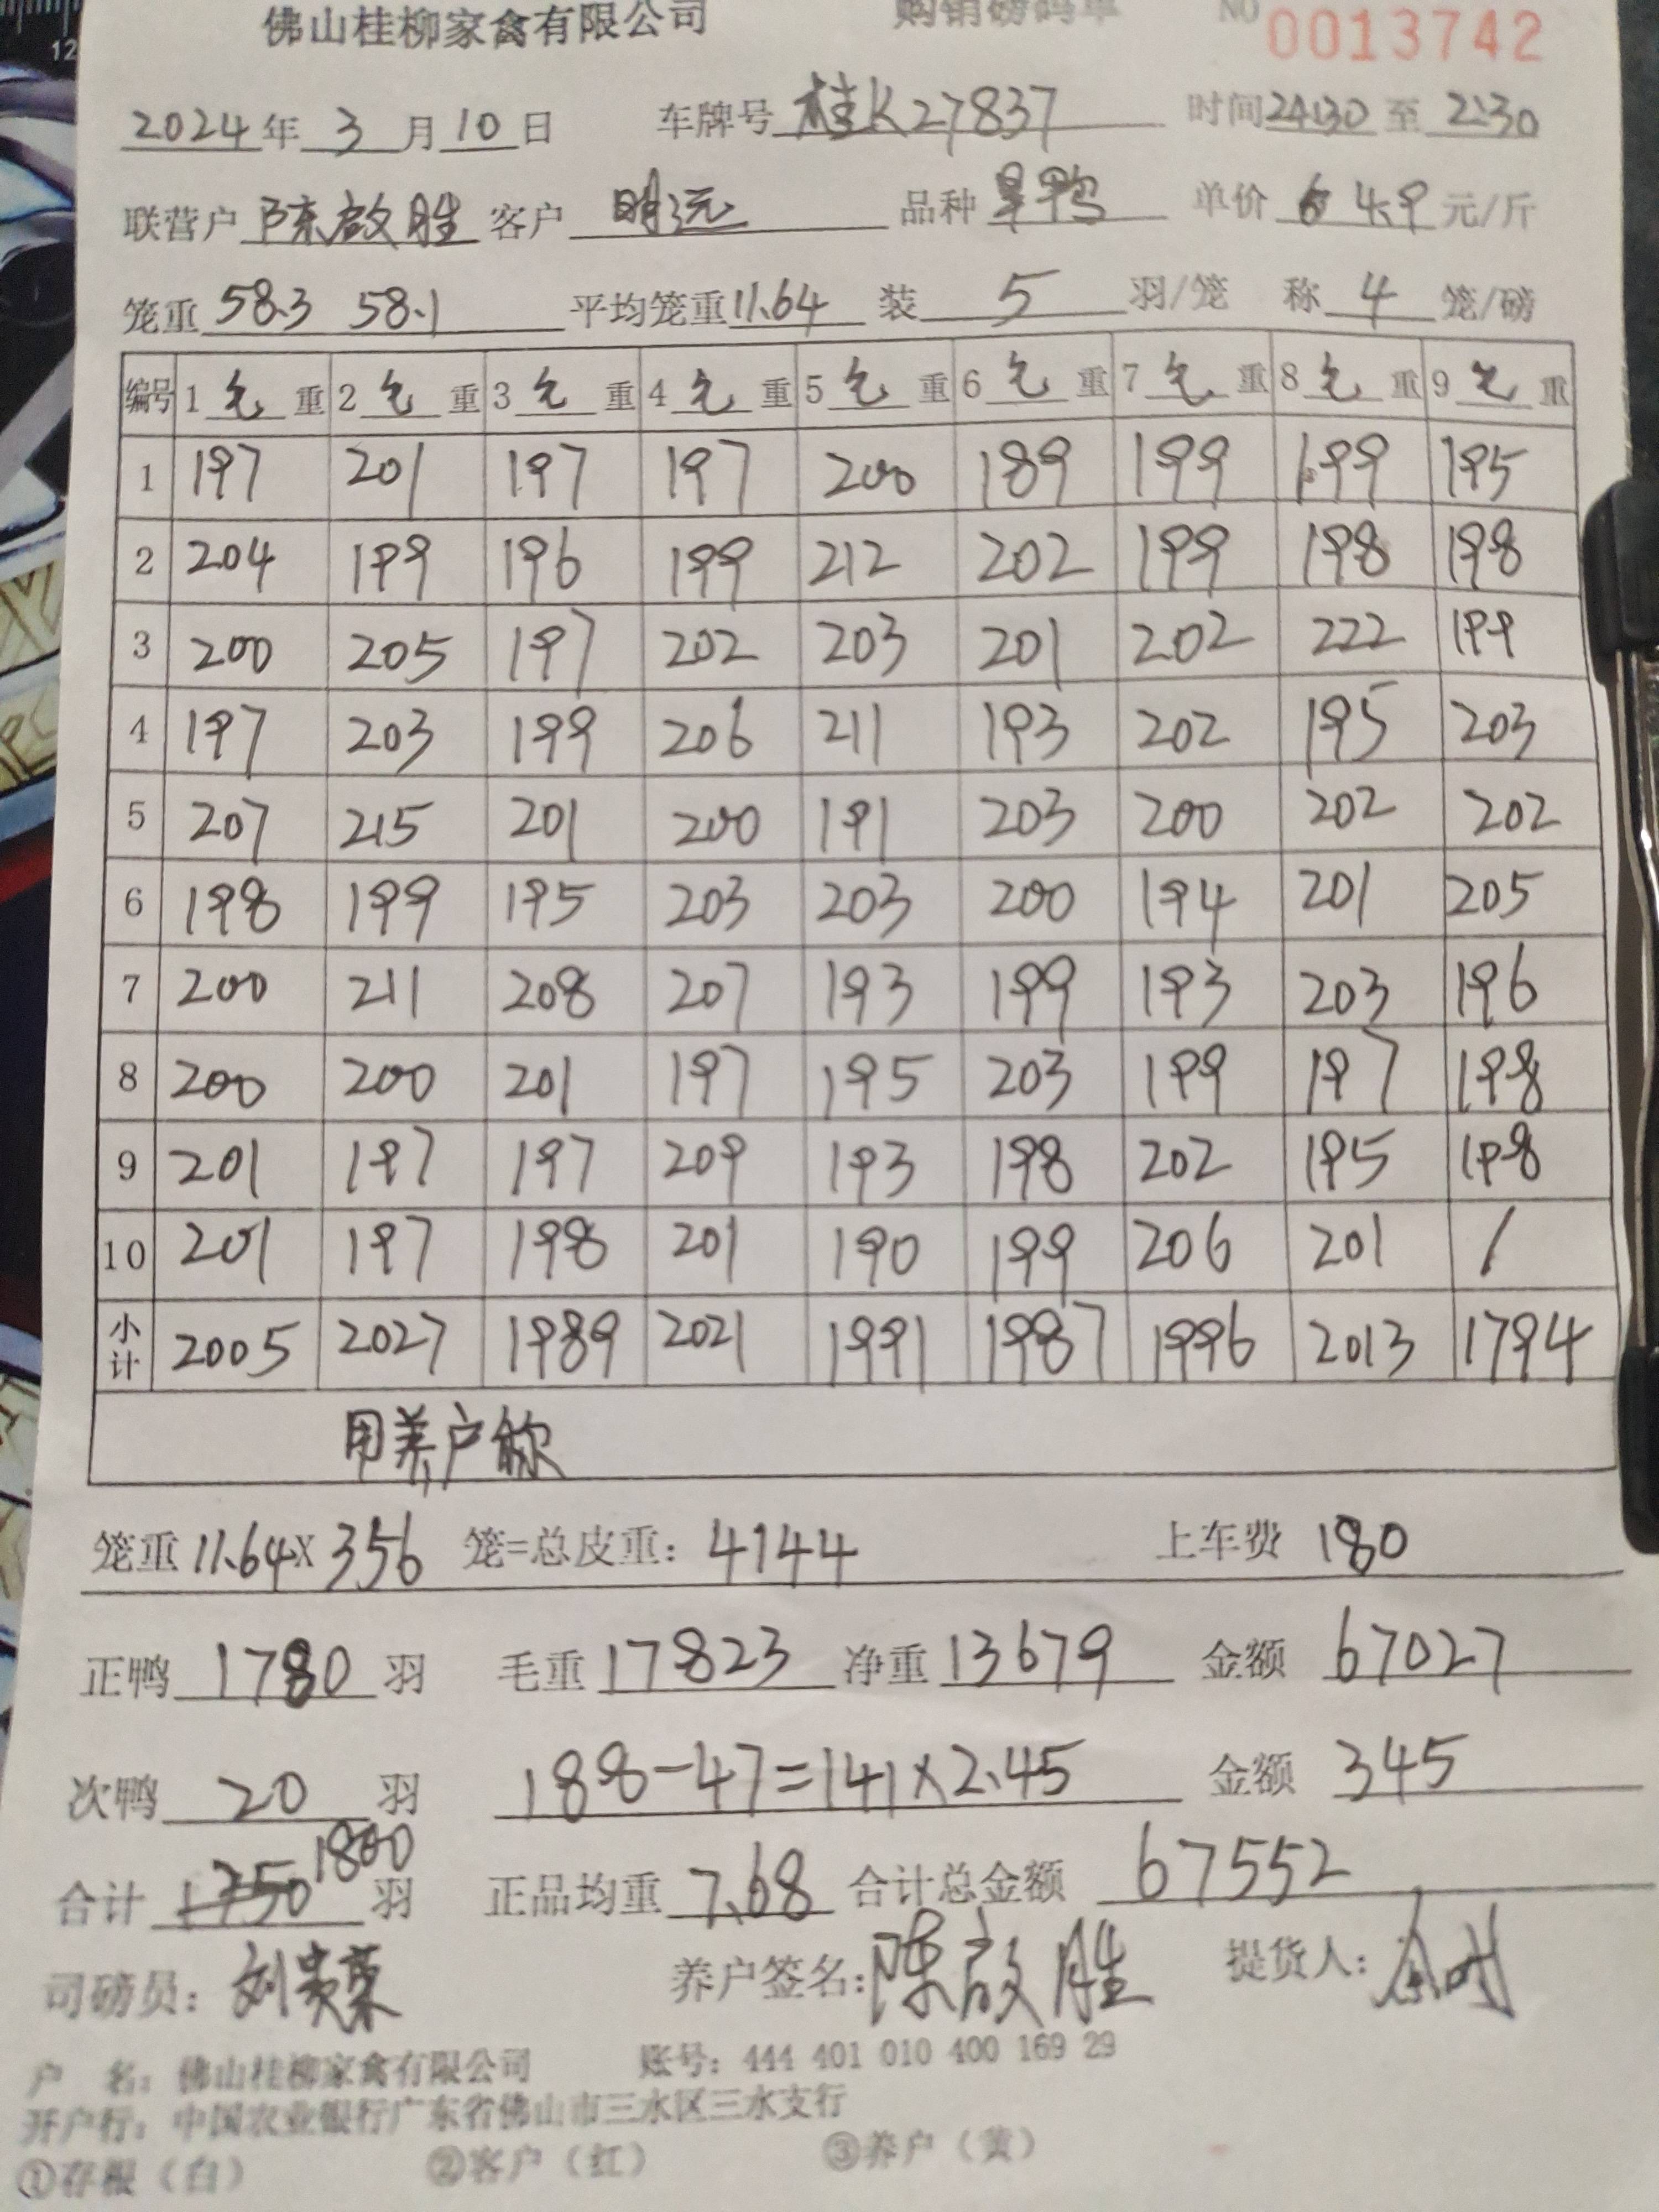 佛山桂柳家禽有限公司 购销磅码单 NO 0013742
2024年 3 月 10 日 车牌号 桂K27837 时间 24:30 至 2:30
联营户 陈啟胜 客户 明远 品种 旱鸭 单价 4.9 元/斤
笼重 58.3 58.1 平均笼重 11.64 装 5 羽/笼 称 4 笼/磅
编号 1 毛 重 2 毛 重 3 毛 重 4 毛 重 5 毛 重 6 毛 重 7 毛 重 8 毛 重 9 毛 重
1 197 201 197 197 200 189 199 199 195
2 204 199 196 199 212 202 199 198 198
3 200 205 197 202 203 201 202 222 199
4 197 203 199 206 211 193 202 195 203
5 207 215 201 200 191 203 200 202 202
6 198 199 195 203 203 200 194 201 205
7 200 211 208 207 193 199 193 203 196
8 200 200 201 197 195 203 199 197 198
9 201 197 197 209 193 198 202 195 198
10 201 197 198 201 190 199 206 201 /
小计 2005 2027 1989 2021 1991 1987 1996 2013 1794
用养户称
笼重 11.64X 356 笼=总皮重: 4144 上车费 180
正鸭 1780 羽 毛重 17823 净重 13679 金额 67027
次鸭 20 羽 188-47=141×2.45 金额 345
合计 1750 1800 羽 正品均重 7.68 合计总金额 67552
司磅员: 刘 养户签名: 陈啟胜 提货人:
户 名: 佛山桂柳家禽有限公司 账号: 444 401 010 400 169 29
开户行: 中国农业银行广东省佛山市三水区三水支行
①存根（白） ②客户（红） ③养户（黄）